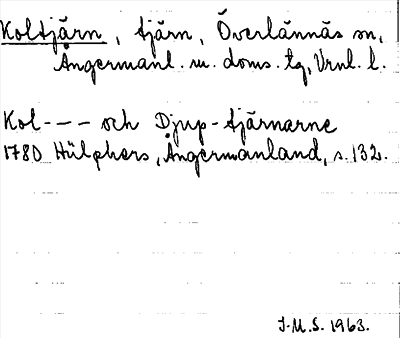 Koltjärn, tjärn, Överlännäs sn,
Ångermanl. m. doms. tg, Vrnl. l.
Kol--- och Djup-tjärnarne
1780 Hülphers, Ångermanland, s. 132.
J.M.S. 1963.